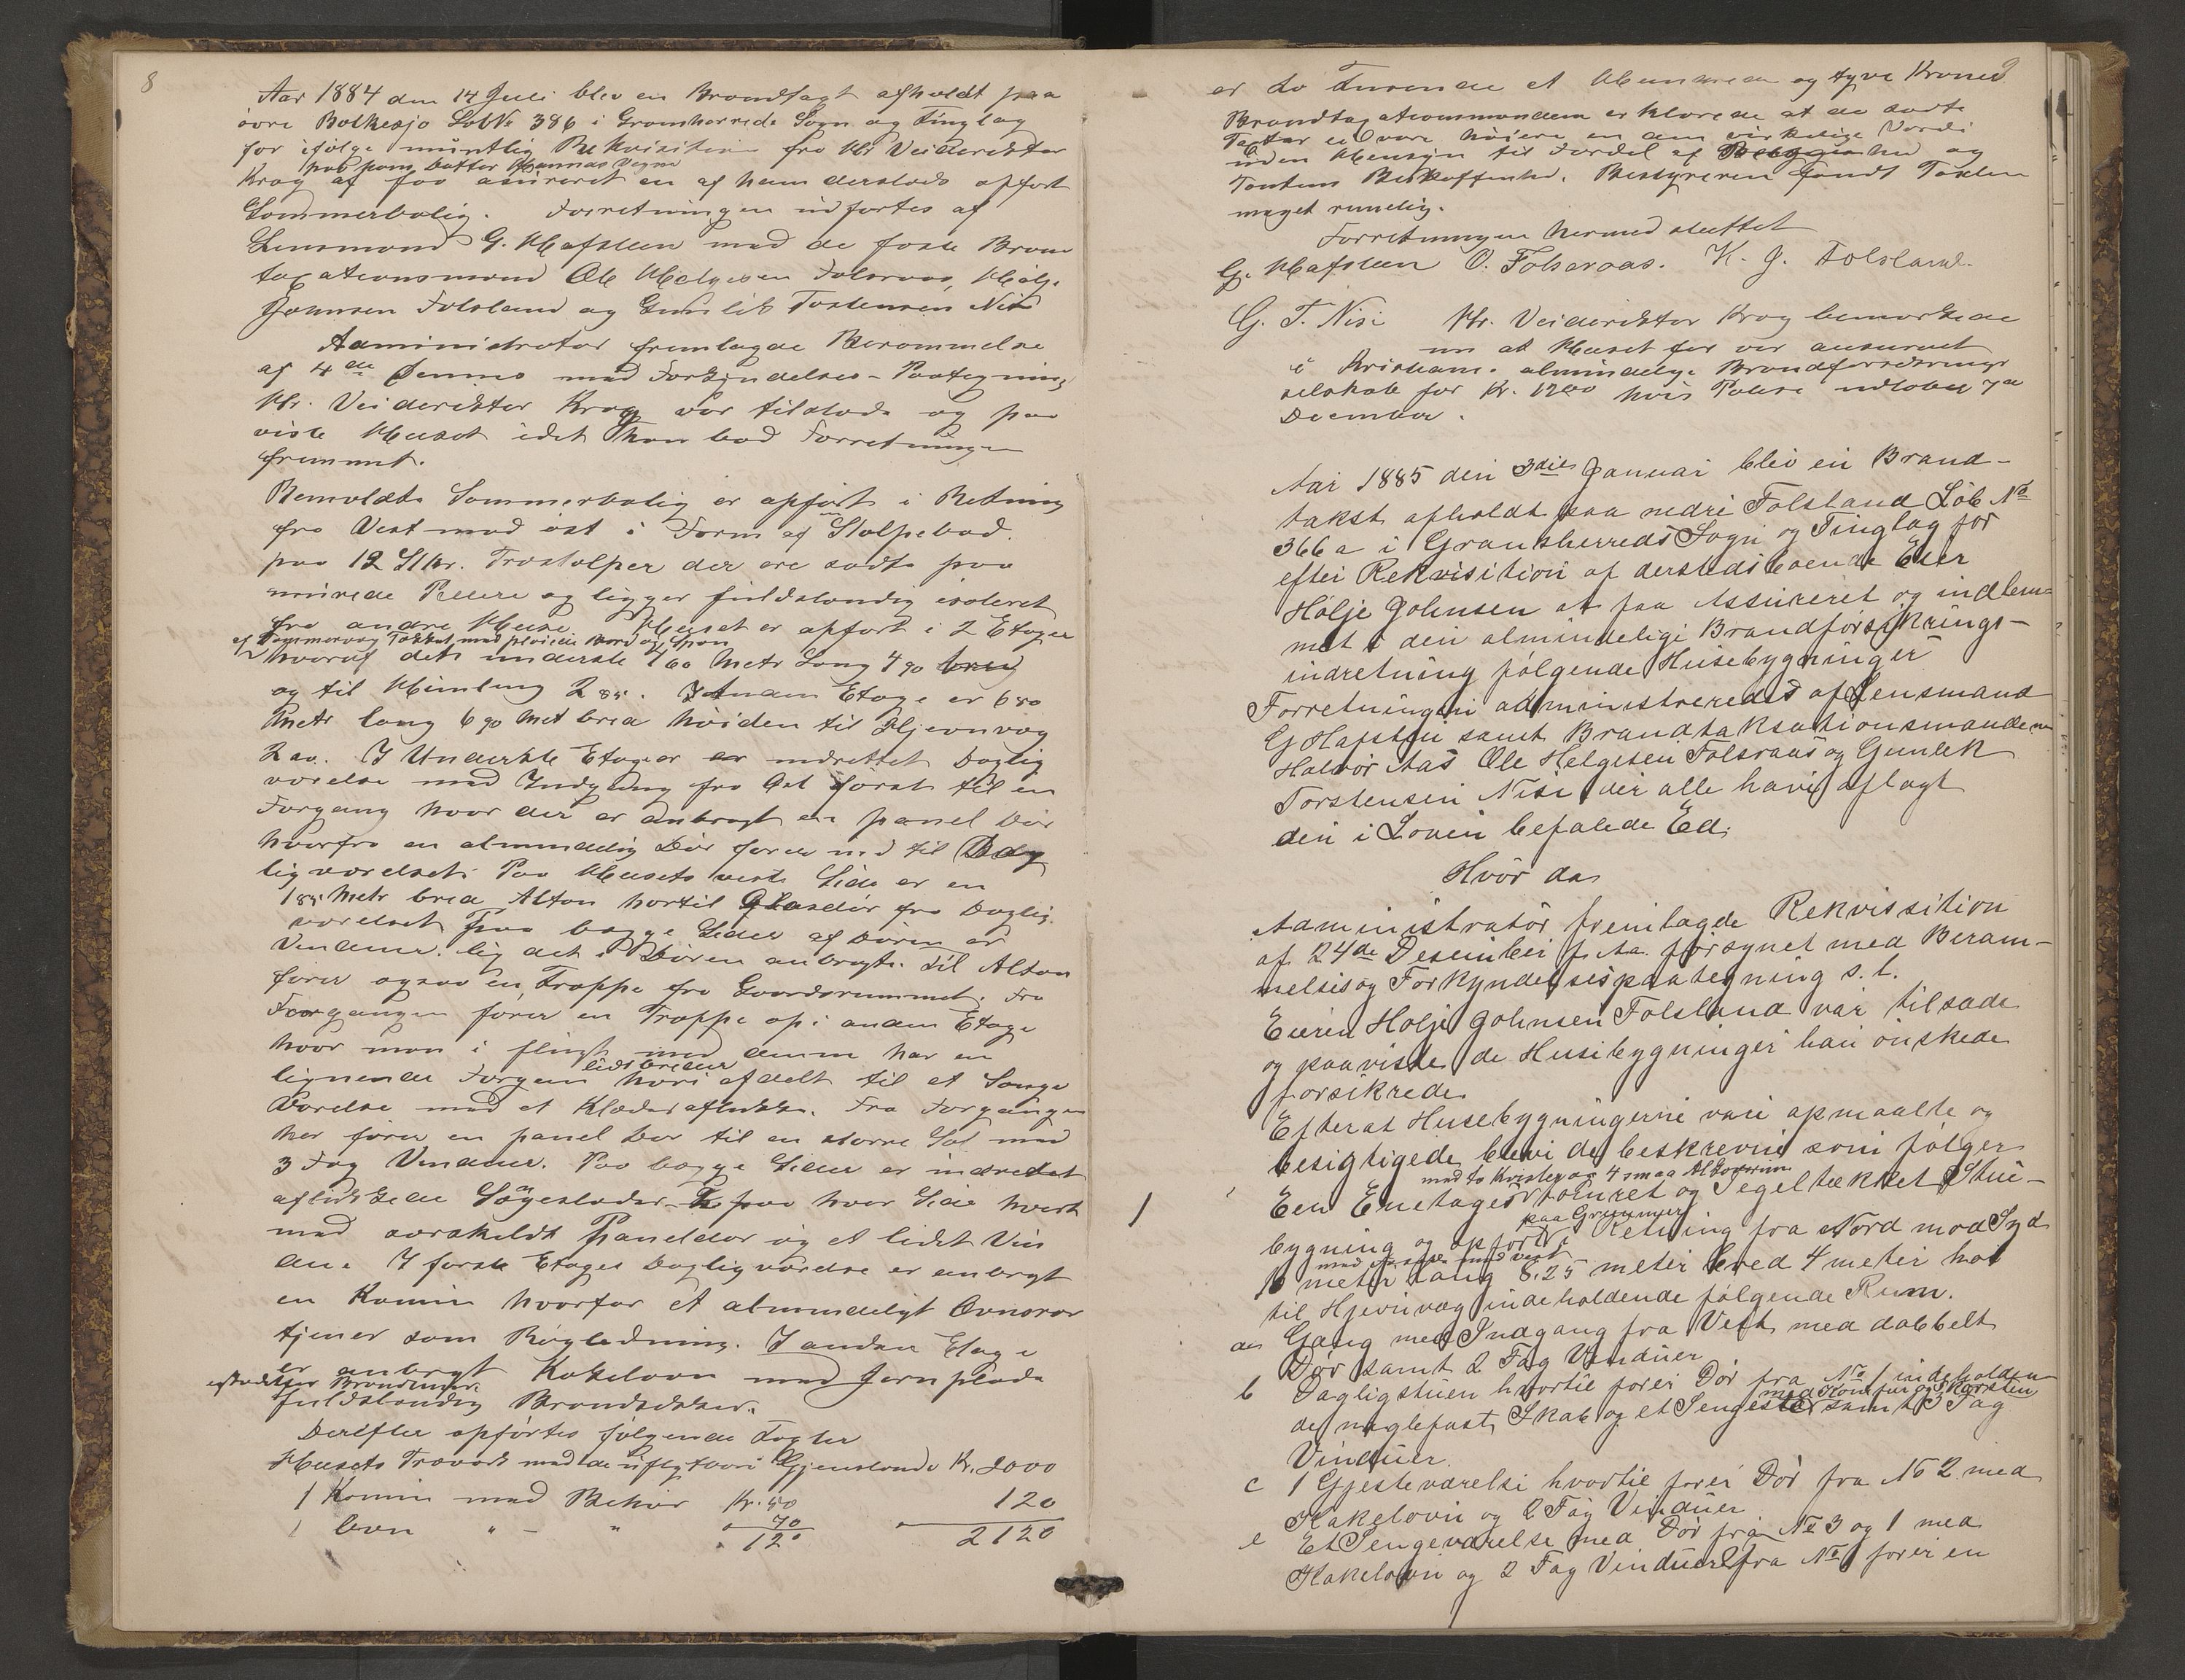 8
Aar 1884 den 14 Juli blev en Brandtagt afholdt paa
övre Bolkesjo LobNo 386 i Gromherreds Sogn og Tinglag
for ifölge muntlig Rekvisition fra Hr Veiderektor
Krag af faa asureret en af ham dersteds opfort
Sommerbolig. Forretningen udfortes af
Lensmand G. Hafsteen med de faste Bran
taxationsmænd Ole Helgesen Folseraas, Halje
Johnsen Folsland og Gunlik Tostensen Nisi
Administrator fremlagde Berammelse
af 4de dennes med Forkyndelses-Paategning
Hr. Veiderektor Krag var tilstede og paa
viste Huset idet han bad Forretningen
fremmet.
Bemeldte Sommerbolig er opfört i Retning
fra Vest mod öst i Form af Stolpebod.
paa 12 Stkr. Træstolper der ere satte paa
murede Pillere og ligger fuldstændig isoleret
fra andre Huse. Huset er opfort i 2 Etager
af Tommervæg Tækket med plöiede Bord og Spon
hvoraf det underste 4 60 Metr Lang 4 90 bred
og til Himling 2 85. I Anden Etage er 6 80
Metr lang 6 90 Met bred höiden til Hjevnvæg
I Underste Etage er indrettet Daglig
værelse med Indgang fra Öst först til en
Forgang hvor der er anbragt en panel Dör
hvorfra en almindelig Dör förer ind til Dag
ligværelset. Paa Husets vestre Side er en
1 85 Metr bred Altan hortil Glasdör fra Daglig
værelset Paa begge Sider af Dören er
Venduer lig det i Dören anbragte. Til Altan
förer ogsaa en Trappe fra Gaardsrummet. Fra
Forgangen förer en Trappe op i anden Etage
hvor man i flugt med denne har en
lidt bredere
lignende Forgang hvori afdelt til et Senge
Værelse med et Klædeaflukke. Fra Forgangen
her förer en panel Dör til en större Sal med
3 Fag Venduer. Paa begge Sider er indredet
aflukkede Sögesteder paa hver Side hvert
med særskildt Paneldör og et lidet Vin
due. I förste Etages Dagligværelse er anbragt
en Kamin hvorfor et almindeligt Ovnsror
tjener som Rögledning. I anden Etage
er anbragt Kakelovn med Jernplade
fuldstændig Brandsikker.
Derefter opförtes fölgende Tagter
Husets Træværk med de uflytbare Gjenstande Kr. 2000
1 Kamin med Behör Kr. 50 120
1 Ovn " - " 70 2120
" 120
er to Tusende et Hundrede og tyve Kroner
Brandtaxationsmændene erklærede at de satte
Taxter ei vare höiere en den virkelige Værdi
uden Hensyn til Fordel af Beliggenhed og
Tomtens Beskaffenhed. Bestyreren fandt Taxten
meget rimelig.
Forretningen hermed sluttet
G. Hafsteen O. Folseraas. H. J. Folsland.
G. T. Nisi Hr. Veiderektor Krag bemærkede
nu at Huset för var assureret
i Kristians. almindelige Brandforsikrings
selskab for Kr. 1200 hvis Polise udlober 7de
December.
Aar 1885 den 3die Januar blev en Brand-
takst afholdt paa nedre Folsland Löb No
366 a i Gransherreds Sogn og Tinglag for
efter Rekvisition af derstedsboende Eier
Hölje Johnsen at faa Assureret og indlem-
met i den almindelige Brandforsikrings-
indretning fölgende Husebygninger
Forretningen administreredes af Lensmand
G Hafsten samt Brandtaksationsmændene
Halvor Aas Ole Helgesen Folsraas og Gunlek
Torstensen Nisi der alle have aflagt
den i Loven befalede Ed.
Hvor da
Administratör fremlagde Rekvissition
af 24de Desember f. Aa. forsynet med Beram-
melses og Forkyndelsespaategning s. l.
Eieren Holje Johnsen Folsland var tilsade
og paaviste de Husebygninger han önskede
forsikrede
Efterat Husebygningerne vare opmaalte og
besigtigede blevi de beskrevne som fölger
med to Kvister og 4 smaa Altoverum
1 Een Enetages tömret og Tegeltækket Stue-
paa Grunmur
bygning og opfört i Retning fra Nord mod Syd
10 meter lang 8,25 meter bred 4 meter höi
til Hjevnvæg indeholdende fölgende Rum.
a Gang med Indgang fra Vest med dobbelt
Dör samt 2 Fag Vinduer
b Dagligstuen hvortil förer Dör fra No 1 indeholden
de naglefast Skab og et Sengested samt 3 Fag
Vinduer.
c 1 Gjesteværelse hvortil förer Dör fra No 2 med
Kakelovn og 2 Fag Vinduer
e Et Sengeværelse med Dör fra No 3 og 1 med
Kakelovn og 2 Fag Vinduer fra No 1 förer en